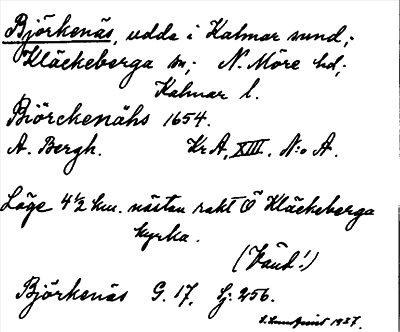 Björkenäs, udde i Kalmar sund;
Kläckeberga sn; N. Möre hd;
Kalmar l.
Biörckenähs 1654.
A. Bergh. Kr A, XIII. N:o A.
Läge 4½ km. nästan rakt Ö Kläckeberga
kyrka.
(Vänd!)
Björkenäs G. 17, Sj: 256.
1927.